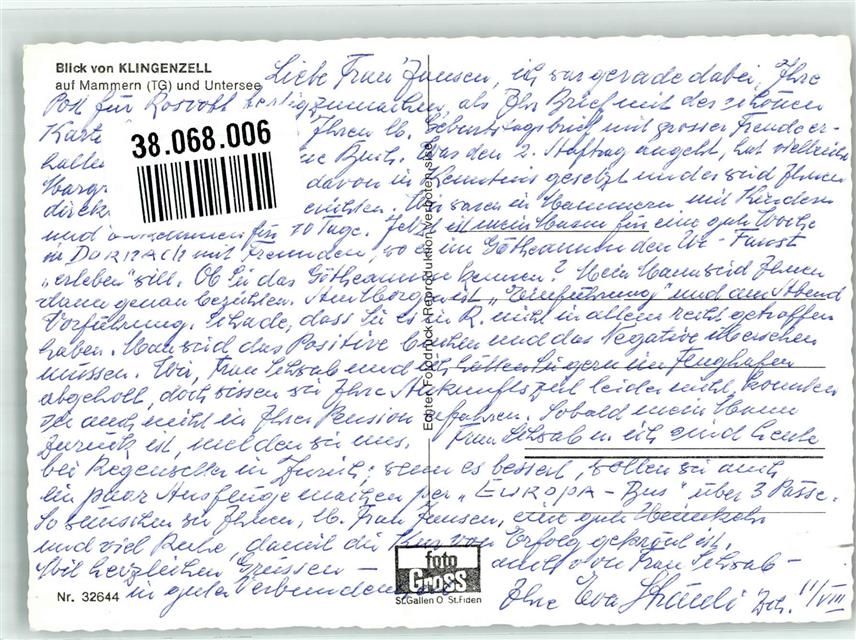 Blick von KLINGENZELL
auf Mammern (TG) und Untersee
Liebe Frau Jansen, ich war gerade dabei, Ihre
Post für fertigzumachen, als Ihr Brief mit der schönen
Karte Ihren lb. Geburtstagsbrief mit grosser Freude er-
halten Was den 2. angeht, hat vielleicht
davon in Kenntnis gesetzt und es wird Ihnen
direkt Wir waren in Mammern mit Kindern
und für 10 Tage. Jetzt ist mein Mann für eine gute Woche
in DORNACH mit Freunden, wo er im Götheanum den Ur-Faust
"erleben" will. Ob Sie das Götheanum kennen? Mein Mann wird Ihnen
dann genau berichten. Am Morgen ist "Einführung" und am Abend
Vorführung. Schade, dass Sie es in R. nicht in allem recht getroffen
haben. Man wird das Positive buchen und das Negative übersehen
müssen. Wir, Frau Schwab und ich hätten Sie gern im Flughafen
abgeholt, doch wissen wir Ihre Ankunftszeit leider nicht, konnten
sie auch nicht in Ihrer Pension erfahren. Sobald mein Mann
zurück ist, melden wir uns. Frau Schwab u. ich sind heute
bei Regenwetter in Zürich; wenn es bessert, wollen wir auch
ein paar Ausflüge machen per "EUROPA-Bus" über 3 Pässe.
So wünschen wir Ihnen, lb. Frau Jansen, eine gute Heimkehr
und viel Ruhe, damit die Kur von Erfolg gekrönt ist.
Mit herzlichen Grüssen – auch von Frau Schwab –
in guter Verbundenheit Ihre Eva Zch. 11/VIII
38.068.006
Echter Fotodruck · Reproduktion verboten
foto
GROSS
St.Gallen O St.Fiden
Nr. 32644